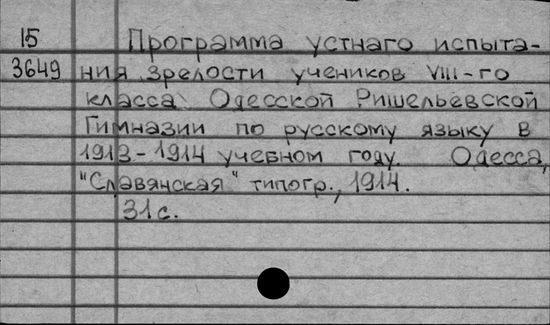 15 Программа устнаго испыта-
3649 ния зрелости учеников VIII-го
класса Одесской Ришельевской
Гимназии по русскому языку в
1913-1914 учебном году. Одесса,
"Славянская" типогр., 1914.
31 с.